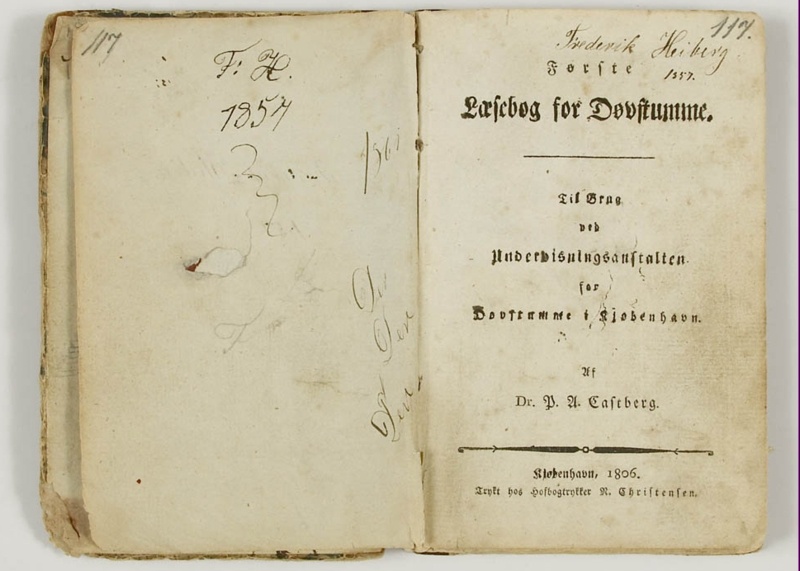 117
F: H.
1857
Den
Den
117.
Frederik Heiberg
1857.
Første
Læsebog for Døvstumme.
Til Brug
ved
Underviisningsanstalten
for
Døvstumme i Kjøbenhavn.
Af
Dr. P. A. Castberg.
Kjøbenhavn, 1806.
Trykt hos Hofbogtrykker N. Christensen.